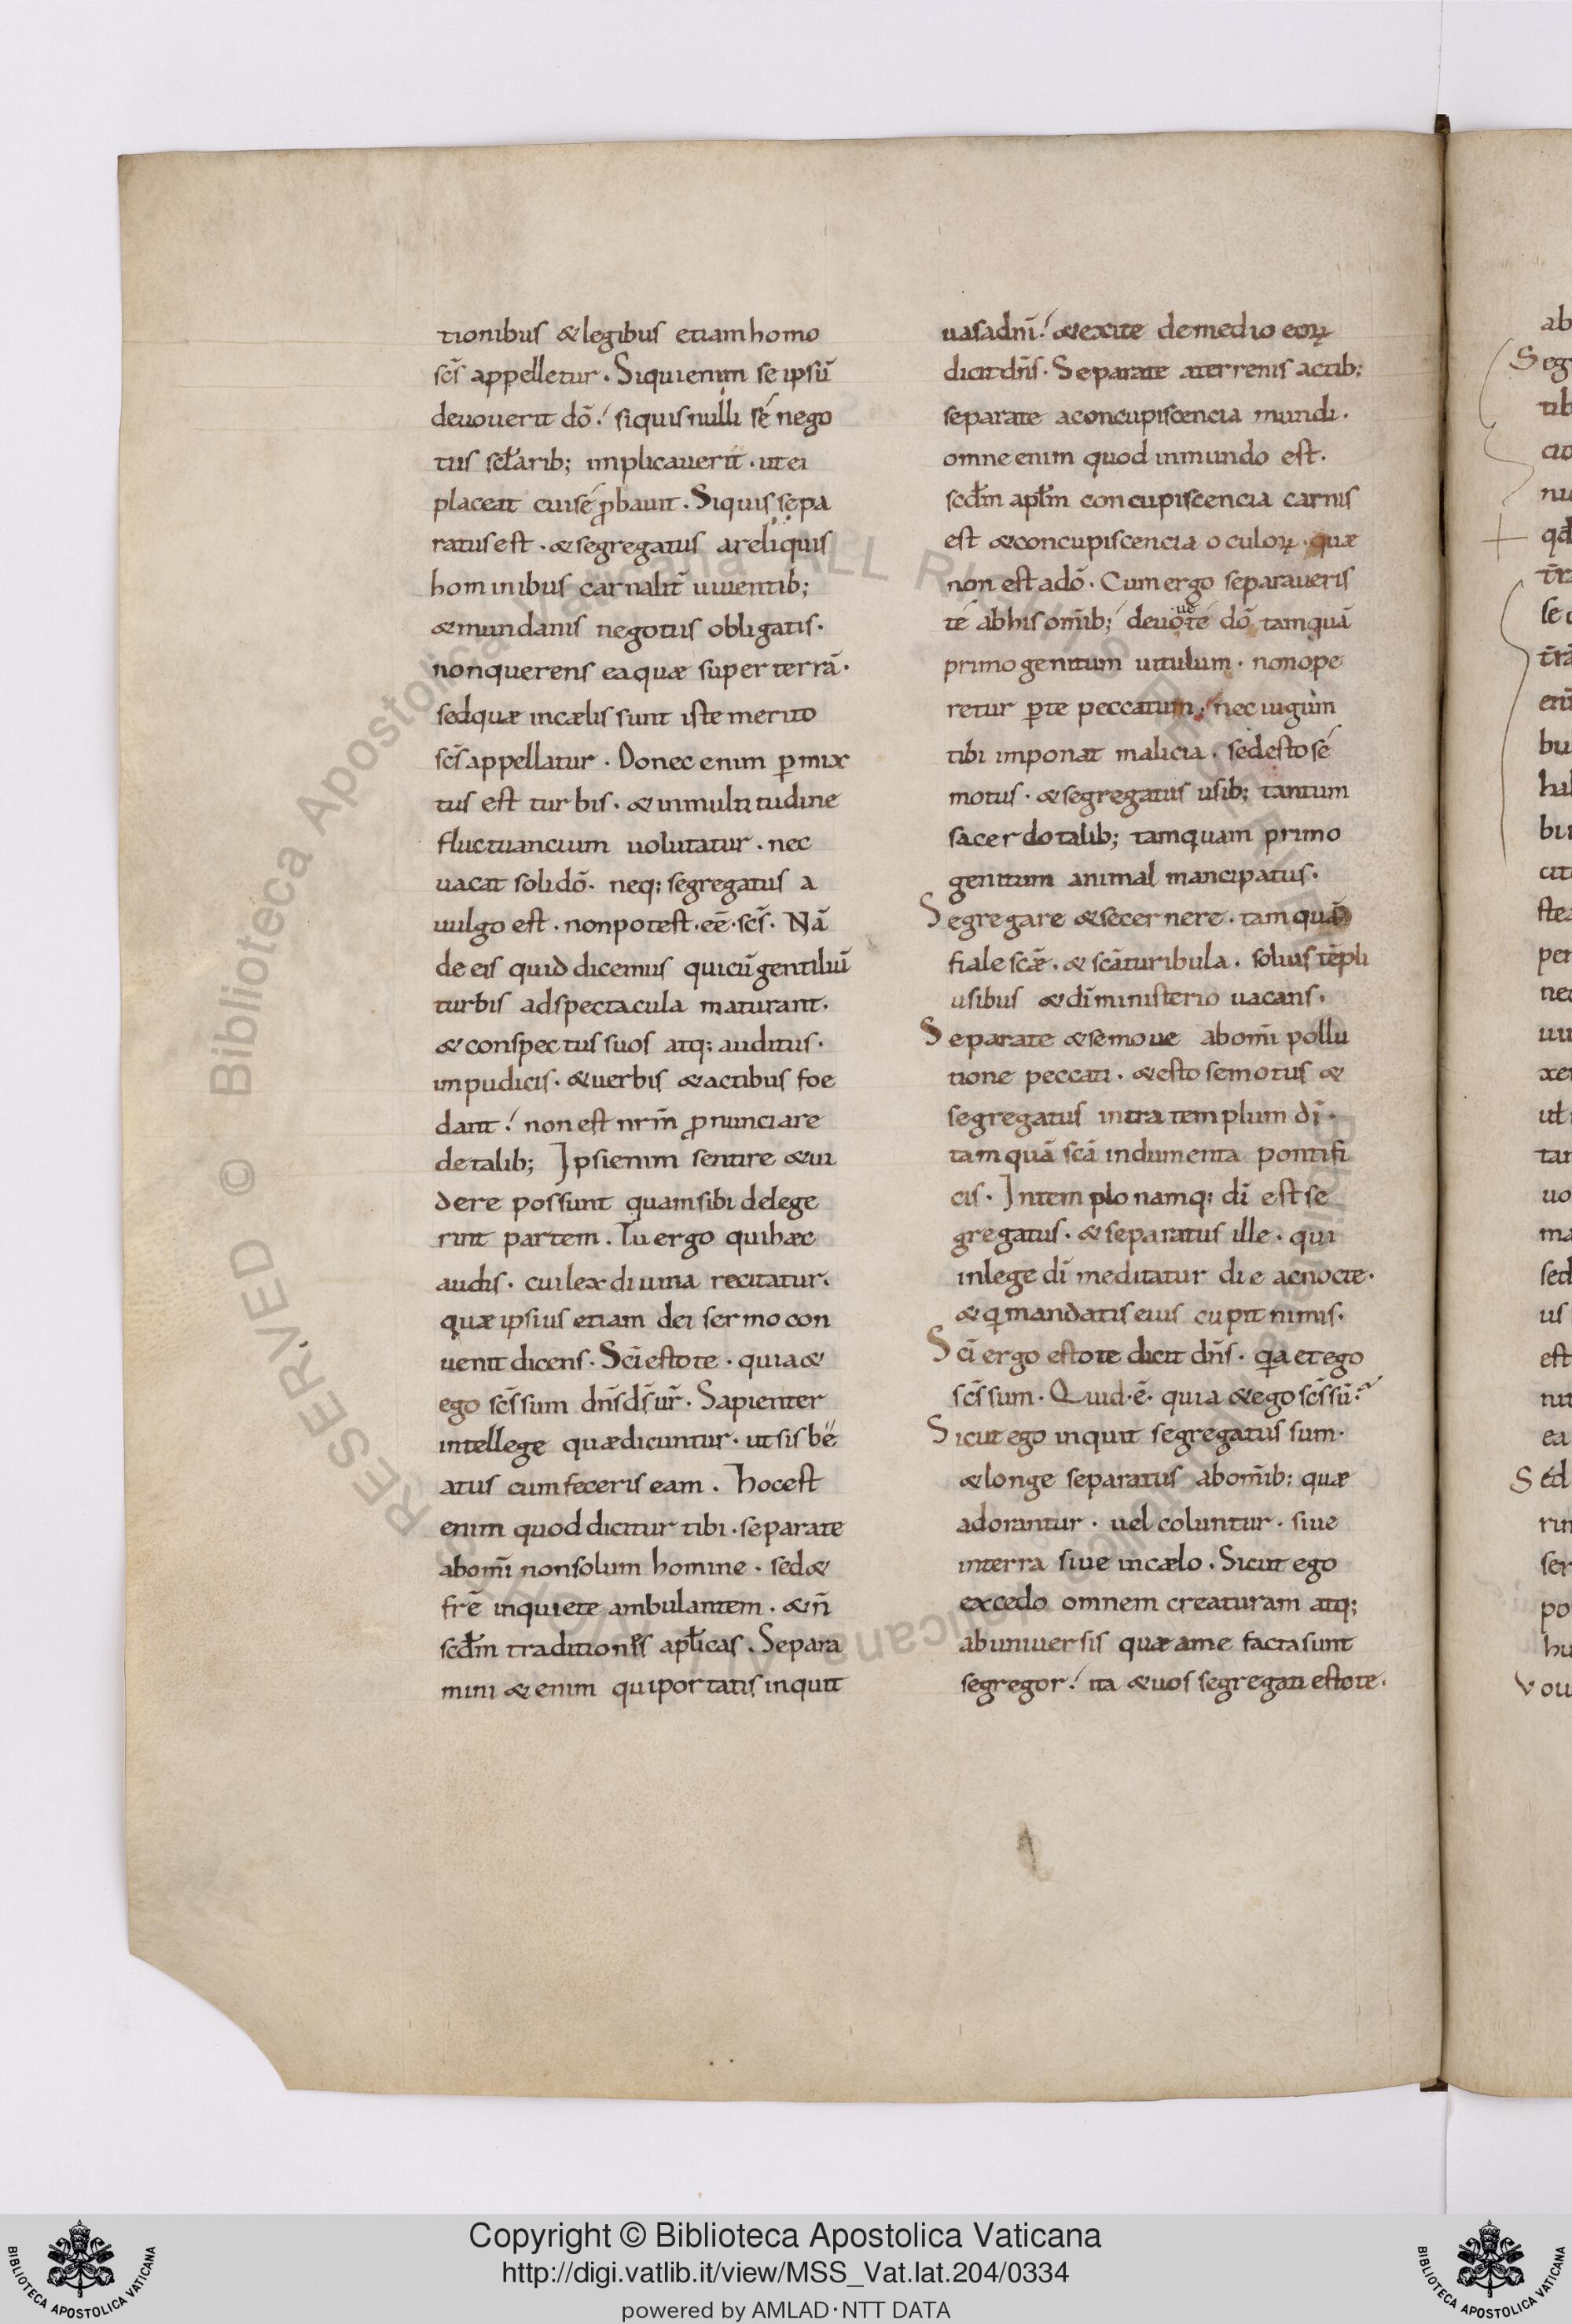 tionibus & legibus etiam homo
scs̄ appelletur. Siquienim se ipsū
deuouerit dō. siquis nulli sé nego
tiis scłarib; implicauerit. ut ei
placeat cui sé ꝓbauit. Siquis sepa
ratus est. & segregatus a reliquis
hominibus carnalit̄ uiuentib;
& mundanis negotiis obligatis.
non querens ea quæ super terrā.
sed quæ in cælis sunt iste merito
scs̄ appellatur. Donec enim ꝑmix
tus est turbis. & in multitudine
fluctuancium uolutatur. nec
uacat soli dō. neq; segregatus a
uulgo est. non potest. eē. scs̄. Nā
de eis quid dicemus qui cū gentiliū
turbis ad spectacula maturant.
& conspectus suos atq; auditus.
impudicis. & uerbis & actibus foe
dant. non est nrm̄ ꝓnunciare
de talib; Ipsi enim sentire & ui
dere possunt quam sibi delege
rint partem. Tu ergo qui hæc
audis. cui lex diuina recitatur.
quæ ipsius etiam dei sermo con
uenit dicens. Scī estote. quia &
ego scs̄ sum dns̄ ds̄ ur̄. Sapienter
intellege quæ dicuntur. ut sis be
atus cum feceris eam. Hoc est
enim quod dicitur tibi. separate
ab omī non solum homine. sed &
frē inquiete ambulantem. & n̄
scdm̄ traditiones apłicas. Separa
mini & enim qui portatis inquit
uasa dnī. & exite de medio eoꝝ
dicit dns̄. Separate a terrenis actib;
separate a concupiscencia mundi.
omne enim quod in mundo est.
scdm̄ aptm̄ concupiscencia carnis
est & concupiscencia oculoꝝ. quæ
non est a dō. Cum ergo separaueris
té ab his omīb; deuoue té dō tamquā
primogenitum uitulum. non ope
retur ꝑ te peccatum. nec iugum
tibi imponat malicia. sed esto sé
motus. & segregatus usib; tantum
sacerdotalib; tamquam primo
genitum animal mancipatus.
Segregare & secernere. tamquā
fiale scǣ. & scā turibula. solius tēpli
usibus & dī ministerio uacans.
Separate & semoue ab omī pollu
tione peccati. & esto semotus &
segregatus intra templum dī.
tamquā scā indumenta pontifi
cis. In templo namq; dī est se
gregatus. & separatus ille. qui
in lege dī meditatur die ac nocte.
& qi mandatis eius cupit nimis.
Scī ergo estote dicit dns̄. qa et ego
scs̄ sum. Quid. ē. quia & ego scs̄ sū?
Sicut ego inquit segregatus sum.
& longe separatus ab omīb; quæ
adorantur. uel coluntur. siue
in terra siue in cælo. Sicut ego
excedo omnem creaturam atq;
ab uniuersis quæ a me facta sunt
segregor. ita & uos segregati estote.
ab
Seg
tib
cio
nu
qd
se
trā
bu
hal
bu
cit
stea
per
nec
uu
xer
ut
tan
uo
ma
sed
us
est
nu
ea
Sed
rin
ser
po
hu
Vou
© Biblioteca Apostolica Vaticana ALL RIGHTS RESERVED
Copyright © Biblioteca Apostolica Vaticana
http://digi.vatlib.it/view/MSS_Vat.lat.204/0334
powered by AMLAD·NTT DATA
BIBLIOTECA APOSTOLICA VATICANA
BIBLIOTECA APOSTOLICA VATICANA